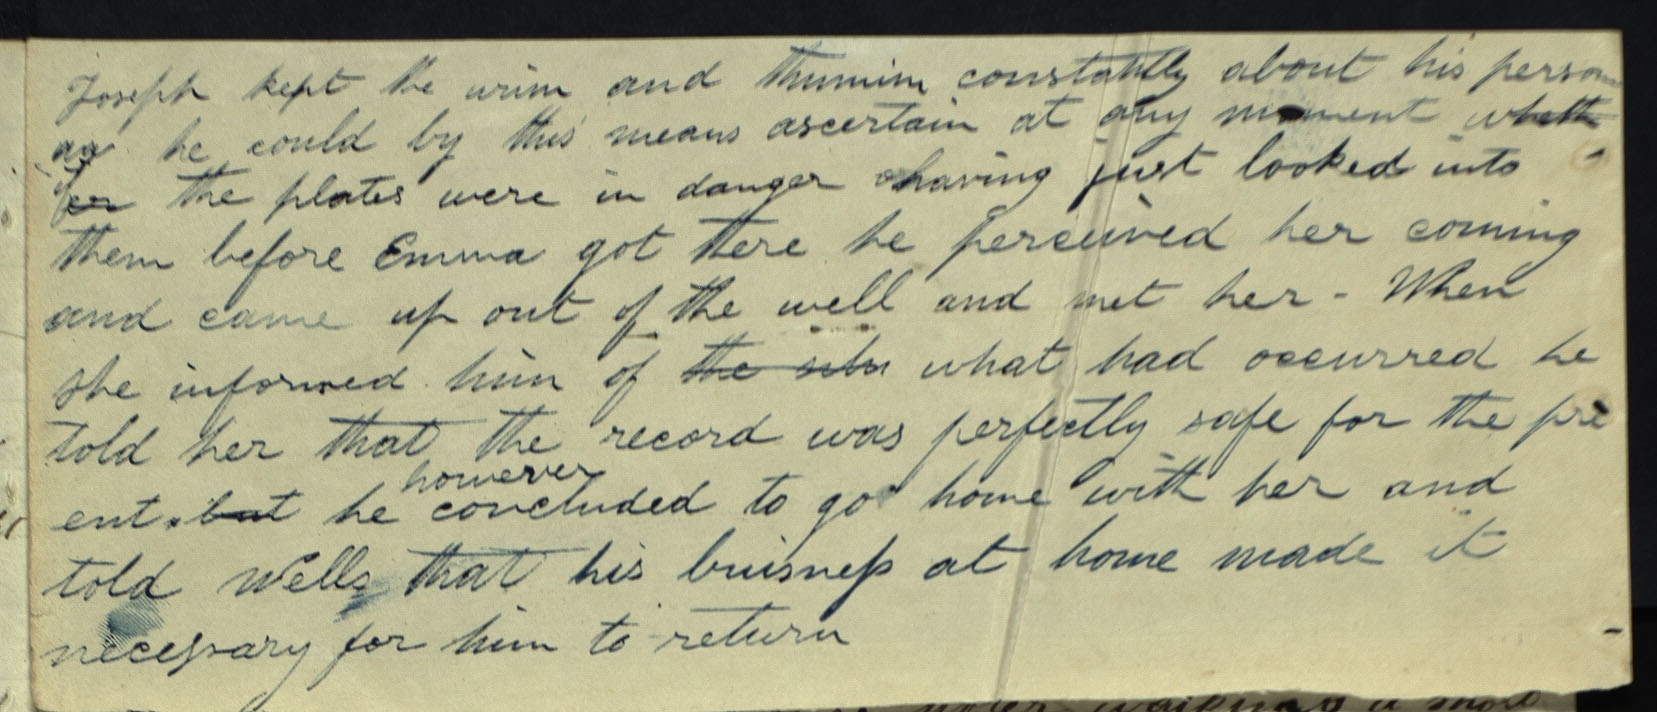 Joseph kept the urim and thumim constantly about his person
as he could by this means ascertain at any moment wheth
if er the plates were in danger having just looked into
them before Emma got there he perceived her coming
and came up out of the well and met her - When
she informed him of the what had occurred he
told her that the record was perfectly safe for the pre
ent. but he however concluded to go home with her and
told Wells that his buisness at home made it
necessary for him to return